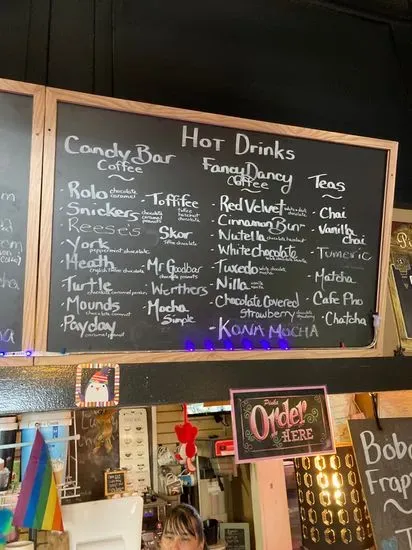 Hot Drinks
Candy Bar
Coffee
Rolo chocolate caramel
Snickers chocolate caramel peanuts
Reese's
York peppermint chocolate
Heath english toffee chocolate
Turtle chocolate caramel pecan
Mounds chocolate coconut
Payday caramel peanut
Toffifee toffee hazelnut chocolate
Skor toffee chocolate
Mr Goodbar chocolate peanuts
Werthers
Mocha Simple
Fancy Dancy
Coffee
Red Velvet white & dark chocolate
Cinnamon Bun
Nutella chocolate hazelnut
White chocolate
Tuxedo white chocolate mocha
Nilla vanilla
Chocolate Covered
Strawberry chocolate strawberry
KONA MOCHA
Teas
Chai
Vanilla chai
Tumeric
Matcha
Cafe Pho
Chatcha
Please
Order
HERE
Boba
Frap